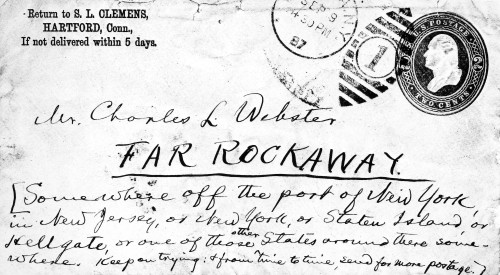 Return to S. L. CLEMENS,
HARTFORD, Conn.,
If not delivered within 5 days.
N.Y.
SEP 9
4 30 PM
87
1
POSTAGE
TWO CENTS
Mr. Charles L Webster
FAR ROCKAWAY.
[Somewhere off the port of New York, or
in New Jersey, or New York, or Staten Island, or
Hellgate, or one of those other States around there some-
where. Keep on trying; & from time to time send for more postage.]